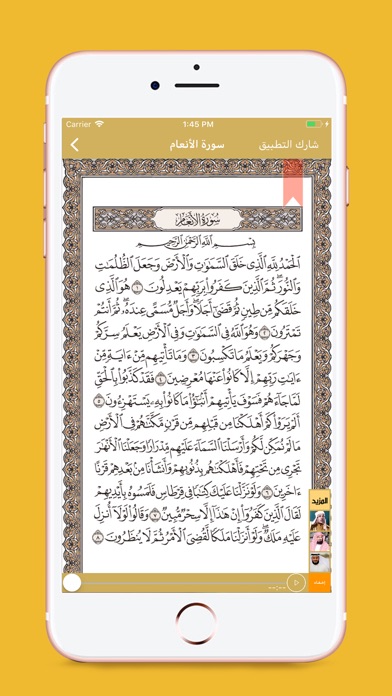 Carrier 1:45 PM
سورة الأنعام شارك التطبيق
سُورَةُ الأَنْعَامِ
بِسْمِ اللَّهِ الرَّحْمَٰنِ الرَّحِيمِ
الْحَمْدُ لِلَّهِ الَّذِي خَلَقَ السَّمَٰوَٰتِ وَالْأَرْضَ وَجَعَلَ الظُّلُمَٰتِ
وَالنُّورَ ثُمَّ الَّذِينَ كَفَرُوا بِرَبِّهِمْ يَعْدِلُونَ ١ هُوَ الَّذِي
خَلَقَكُم مِّن طِينٍ ثُمَّ قَضَىٰ أَجَلًا وَأَجَلٌ مُّسَمًّى عِندَهُ ثُمَّ أَنتُمْ
تَمْتَرُونَ ٢ وَهُوَ اللَّهُ فِي السَّمَٰوَٰتِ وَفِي الْأَرْضِ يَعْلَمُ سِرَّكُمْ
وَجَهْرَكُمْ وَيَعْلَمُ مَا تَكْسِبُونَ ٣ وَمَا تَأْتِيهِم مِّنْ ءَايَةٍ مِّنْ
ءَايَٰتِ رَبِّهِمْ إِلَّا كَانُوا عَنْهَا مُعْرِضِينَ ٤ فَقَدْ كَذَّبُوا بِالْحَقِّ
لَمَّا جَاءَهُمْ فَسَوْفَ يَأْتِيهِمْ أَنۢبَٰٓؤُا مَا كَانُوا بِهِ يَسْتَهْزِءُونَ ٥
أَلَمْ يَرَوْا كَمْ أَهْلَكْنَا مِن قَبْلِهِم مِّن قَرْنٍ مَّكَّنَّٰهُمْ فِي الْأَرْضِ
مَا لَمْ نُمَكِّن لَّكُمْ وَأَرْسَلْنَا السَّمَاءَ عَلَيْهِم مِّدْرَارًا وَجَعَلْنَا الْأَنْهَٰرَ
تَجْرِي مِن تَحْتِهِمْ فَأَهْلَكْنَٰهُم بِذُنُوبِهِمْ وَأَنشَأْنَا مِنۢ بَعْدِهِمْ قَرْنًا
ءَاخَرِينَ ٦ وَلَوْ نَزَّلْنَا عَلَيْكَ كِتَٰبًا فِي قِرْطَاسٍ فَلَمَسُوهُ بِأَيْدِيهِمْ
لَقَالَ الَّذِينَ كَفَرُوا إِنْ هَٰذَا إِلَّا سِحْرٌ مُّبِينٌ ٧ وَقَالُوا لَوْلَا أُنزِلَ
عَلَيْهِ مَلَكٌ وَلَوْ أَنزَلْنَا مَلَكًا لَّقُضِيَ الْأَمْرُ ثُمَّ لَا يُنظَرُونَ ٨
المزيد
--:--